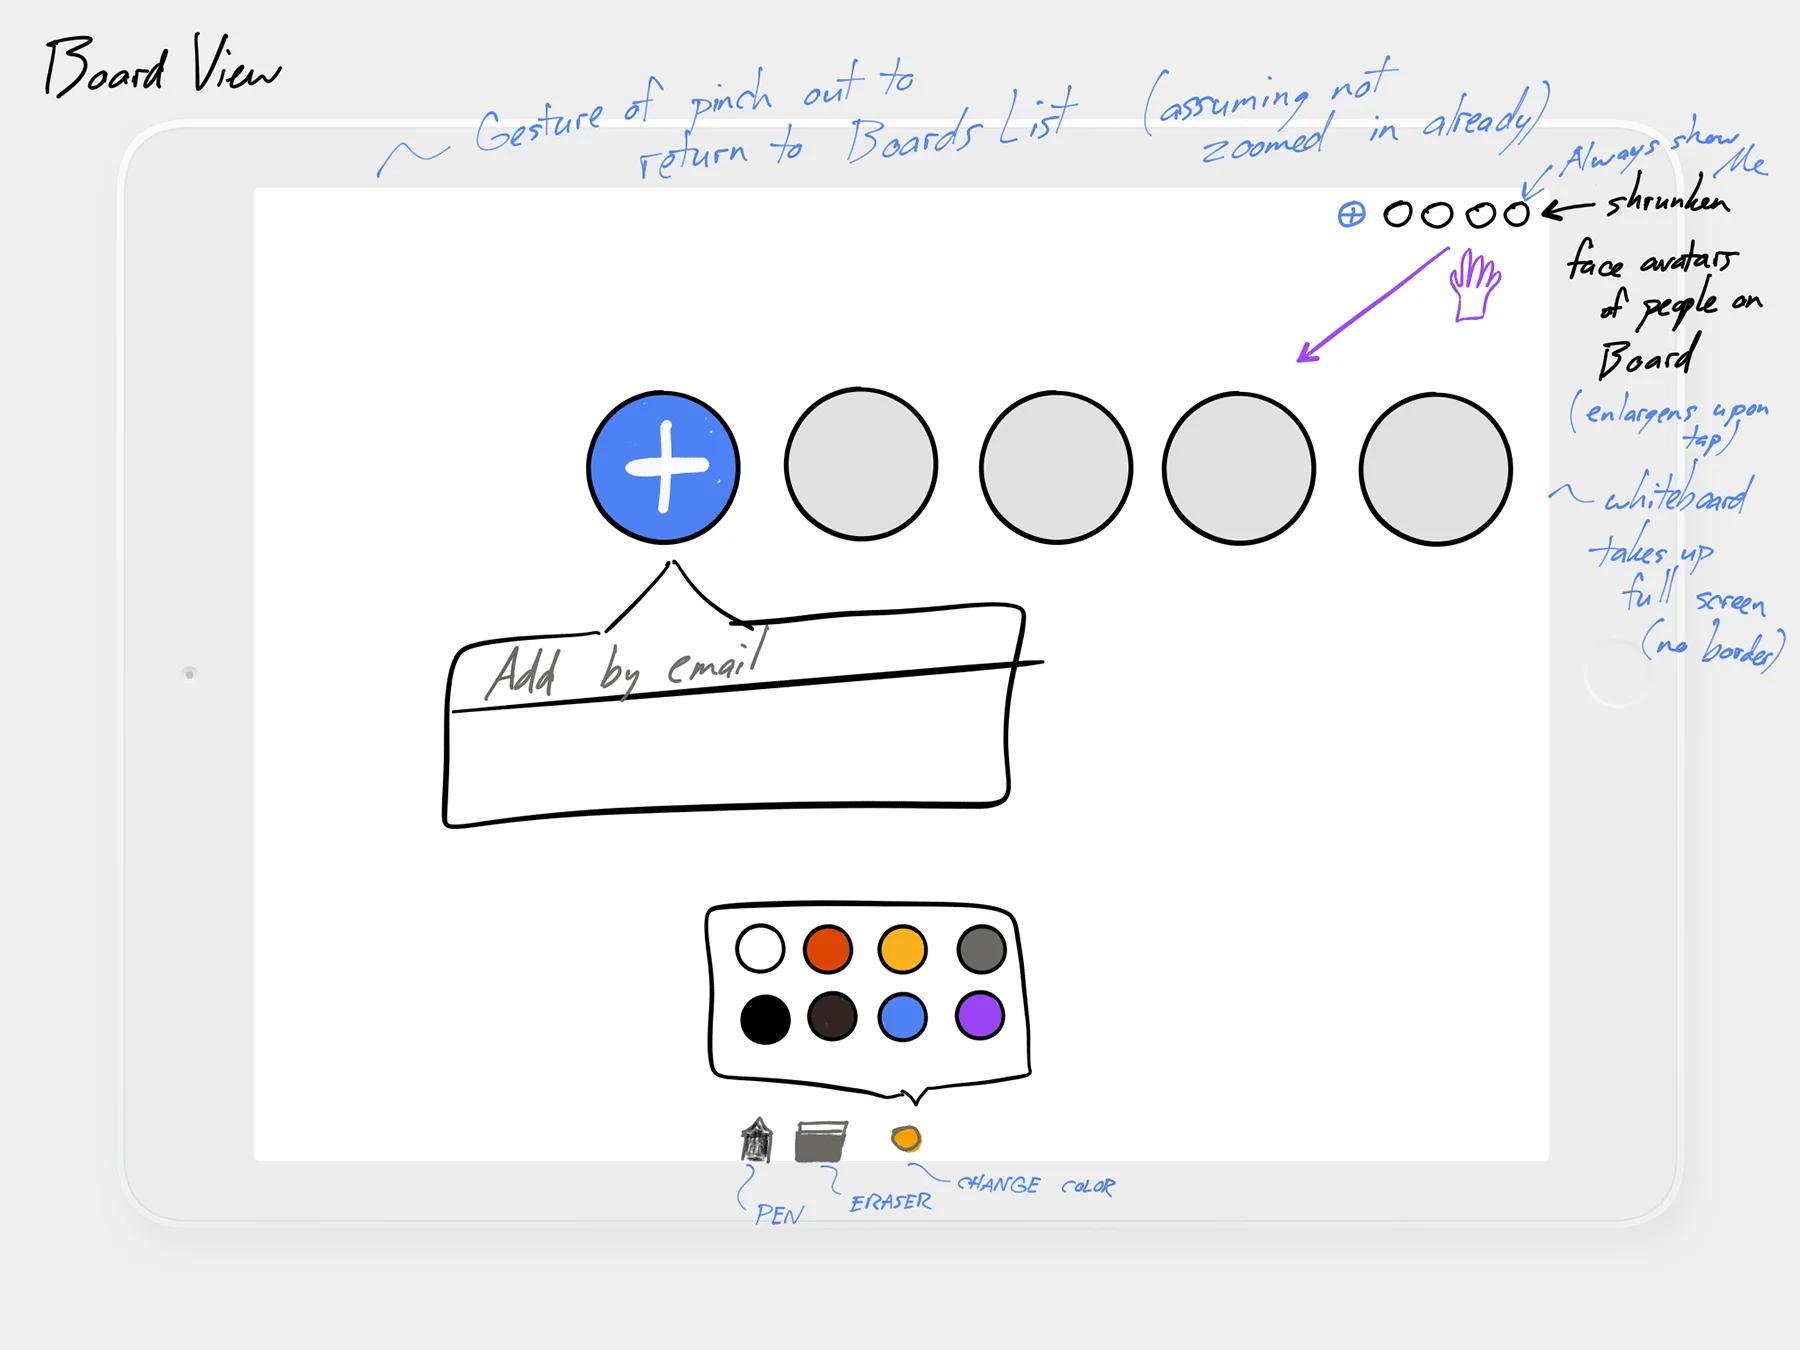 Board View
~ Gesture of pinch out to
return to Boards List
(assuming not
zoomed in already)
Always show
Me
shrunken
face avatars
of people on
Board
(enlargens upon
tap)
~ whiteboard
takes up
full screen
(no border)
Add by email
PEN
ERASER
CHANGE COLOR